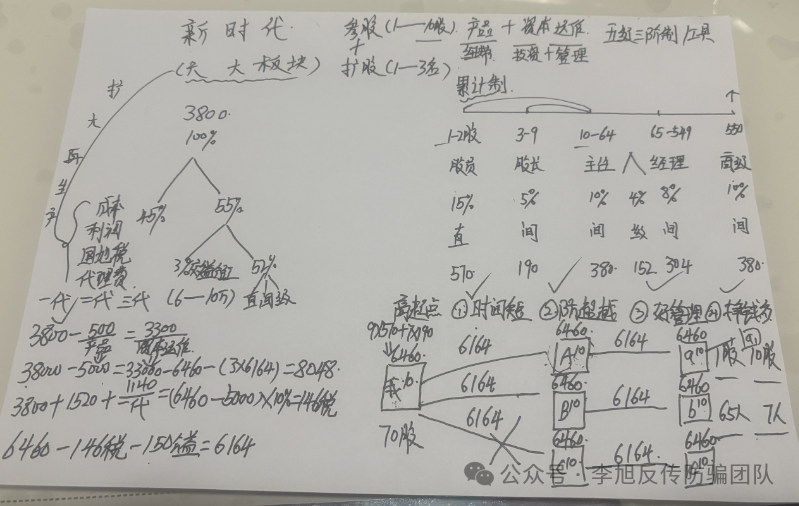 新时代
(六大板块)
参股(1—10股) 产品 + 资本运作 五级三阶制/工具
+
扩股(1—3名)
累计制
扩大再生产
3800.
100%
45% 55%
成本
利润
国地税
代理费
3% 52%
(6—10万) 直间级
一代 二代 三代
1-2股 3-9 10-64 65-549 550
股员 股长 主任 经理 高级
15% 5% 10% 4% 8% 10%
直 间 间 级 间 间
570 190 380. 152 304 380.
高起点 ①时间短 ②阶超越 ③ 管理 ④
3800-500=3300
产品
38000-5000=33000-6460-(3×6164)=8048.
3800+1520+1140=(6460-5000)×10%=146税
代
6460-146税-150益=6164
9×570+7×190
6460
我10
70股
6164 6164 6164
6460
A10
6460
B10
6460
6164 6164 6164
6460
a10
6460
b10
6460
1股 70股
65人 7人
公众号·李旭反传防骗团队